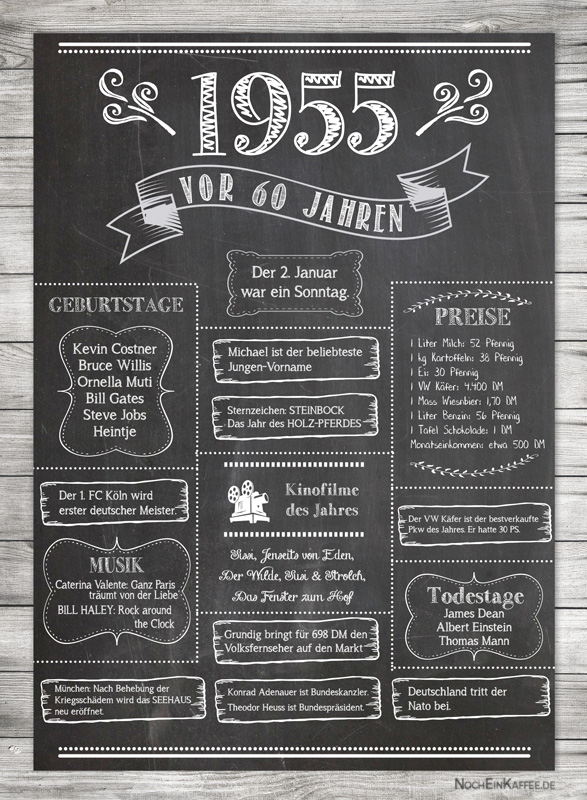 1955
VOR 60 JAHREN
Der 2. Januar
war ein Sonntag.
GEBURTSTAGE
Kevin Costner
Bruce Willis
Ornella Muti
Bill Gates
Steve Jobs
Heintje
Der 1. FC Köln wird
erster deutscher Meister.
MUSIK
Caterina Valente: Ganz Paris
träumt von der Liebe
BILL HALEY: Rock around
the Clock
München: Nach Behebung der
Kriegsschäden wird das SEEHAUS
neu eröffnet.
Michael ist der beliebteste
Jungen-Vorname
Sternzeichen: STEINBOCK
Das Jahr des HOLZ-PFERDES
Kinofilme
des Jahres
Sissi, Jenseits von Eden,
Der Wilde, Susi & Strolch,
Das Fenster zum Hof
Grundig bringt für 698 DM den
Volksfernseher auf den Markt
Konrad Adenauer ist Bundeskanzler.
Theodor Heuss ist Bundespräsident.
PREISE
1 Liter Milch: 52 Pfennig
1 kg Kartoffeln: 38 Pfennig
1 Ei: 30 Pfennig
1 VW Käfer: 4.400 DM
1 Mass Wiesnbier: 1,70 DM
1 Liter Benzin: 56 Pfennig
1 Tafel Schokolade: 1 DM
Monatseinkommen: etwa 500 DM
Der VW Käfer ist der bestverkaufte
Pkw des Jahres. Er hatte 30 PS.
Todestage
James Dean
Albert Einstein
Thomas Mann
Deutschland tritt der
Nato bei.
NOCHEINKAFFEE.DE